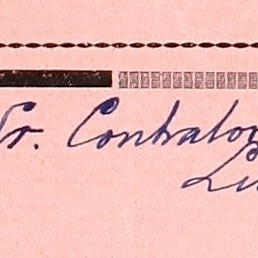 Sr. Contralor
Li